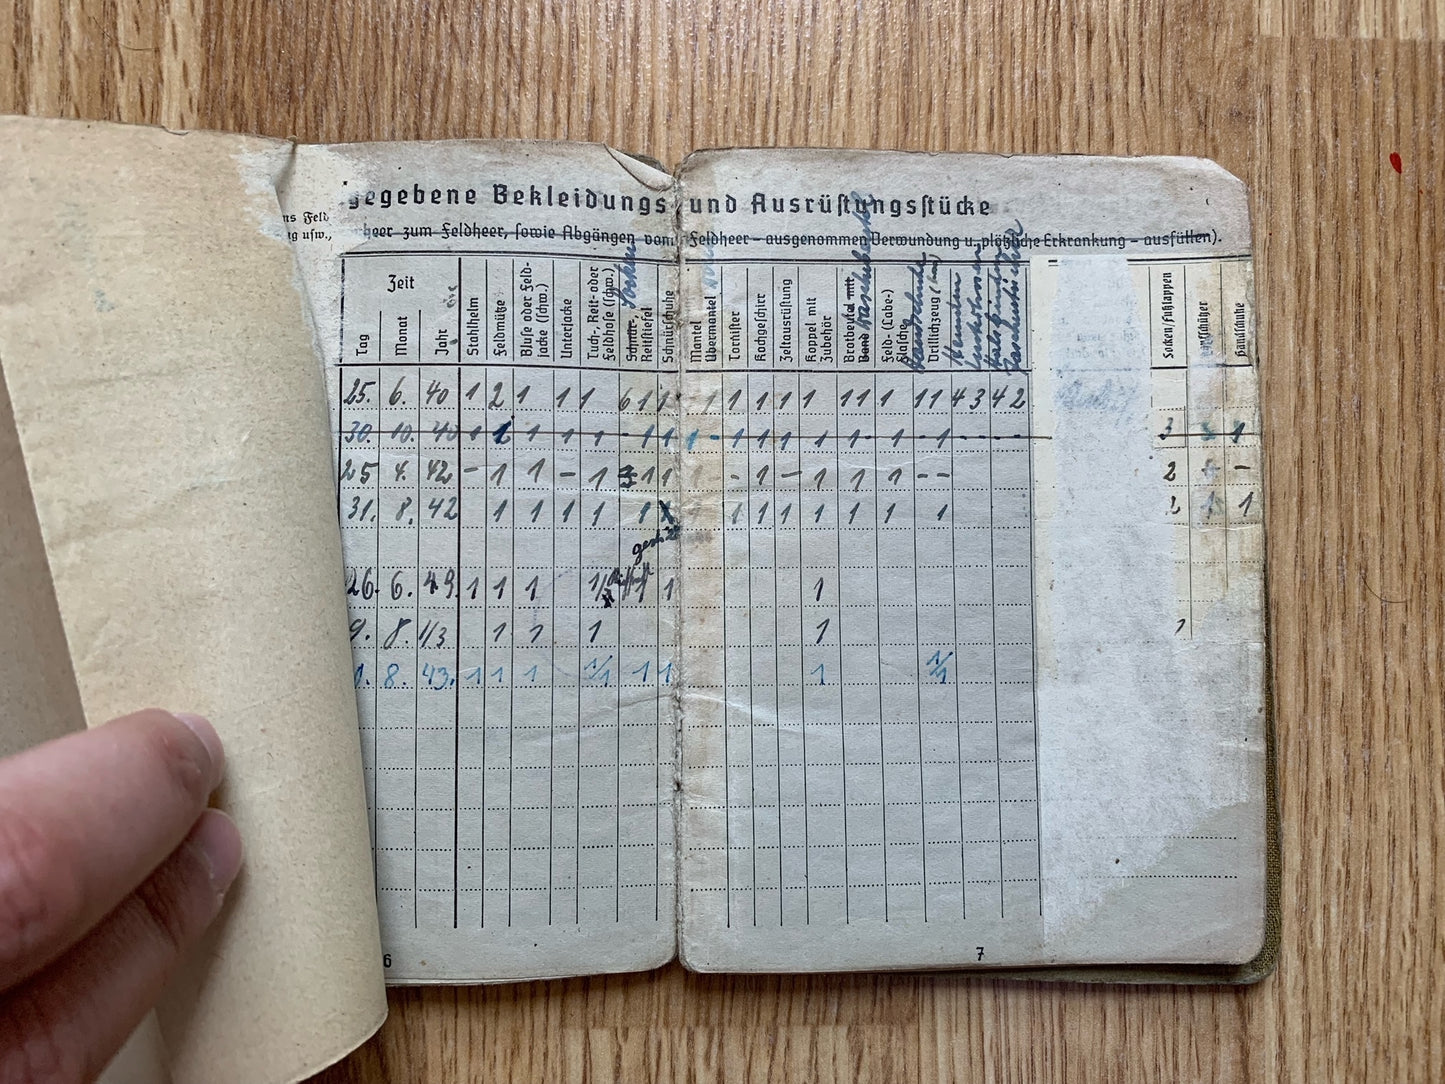 gegebene Bekleidungs- und Ausrüstungsstücke
ns Feld heer zum Feldheer, sowie Abgängen vom Feldheer – ausgenommen Verwundung u. plötzliche Erkrankung – ausfüllen).
usw.,
Zeit
Tag
Monat
Jahr
Stahlhelm
Feldmütze
Bluse oder Feld-
jacke (schw.)
Unterjacke
Tuch-, Reit- oder
Feldhose (schw.)
Schnür-, Socken
Reitstiefel
Schnürschuhe
Mantel
Übermantel
Tornister
Kochgeschirr
Zeltausrüstung
Koppel mit
Zubehör
Brotbeutel mit
Band
Feld- (Labe-)
flasche
Handschuhe
Drillichzeug
Hemden
Unterhosen
Halsbinden
Taschentücher
Socken/Fußlappen
Handschuhe
25. 6. 40 1 2 1 1 1 6 1 1 1 1 1 1 1 1 1 1 1 1 4 3 4 2
30. 10. 40 1 1 1 1 - 1 1 1 - 1 1 1 1 1 - 1 - 1 - - - - 3 1
25 4. 42 - 1 1 - 1 3 1 1 1 - 1 - 1 1 1 - - 2 -
31. 8. 42 1 1 1 1 1 1 1 1 1 1 1 1 1 2 1
26. 6. 1 1 1 1 1
9. 8. 1 1 1 1
1. 8. 43. 1 1 1 1/1 1 1 1 1/1
6
7